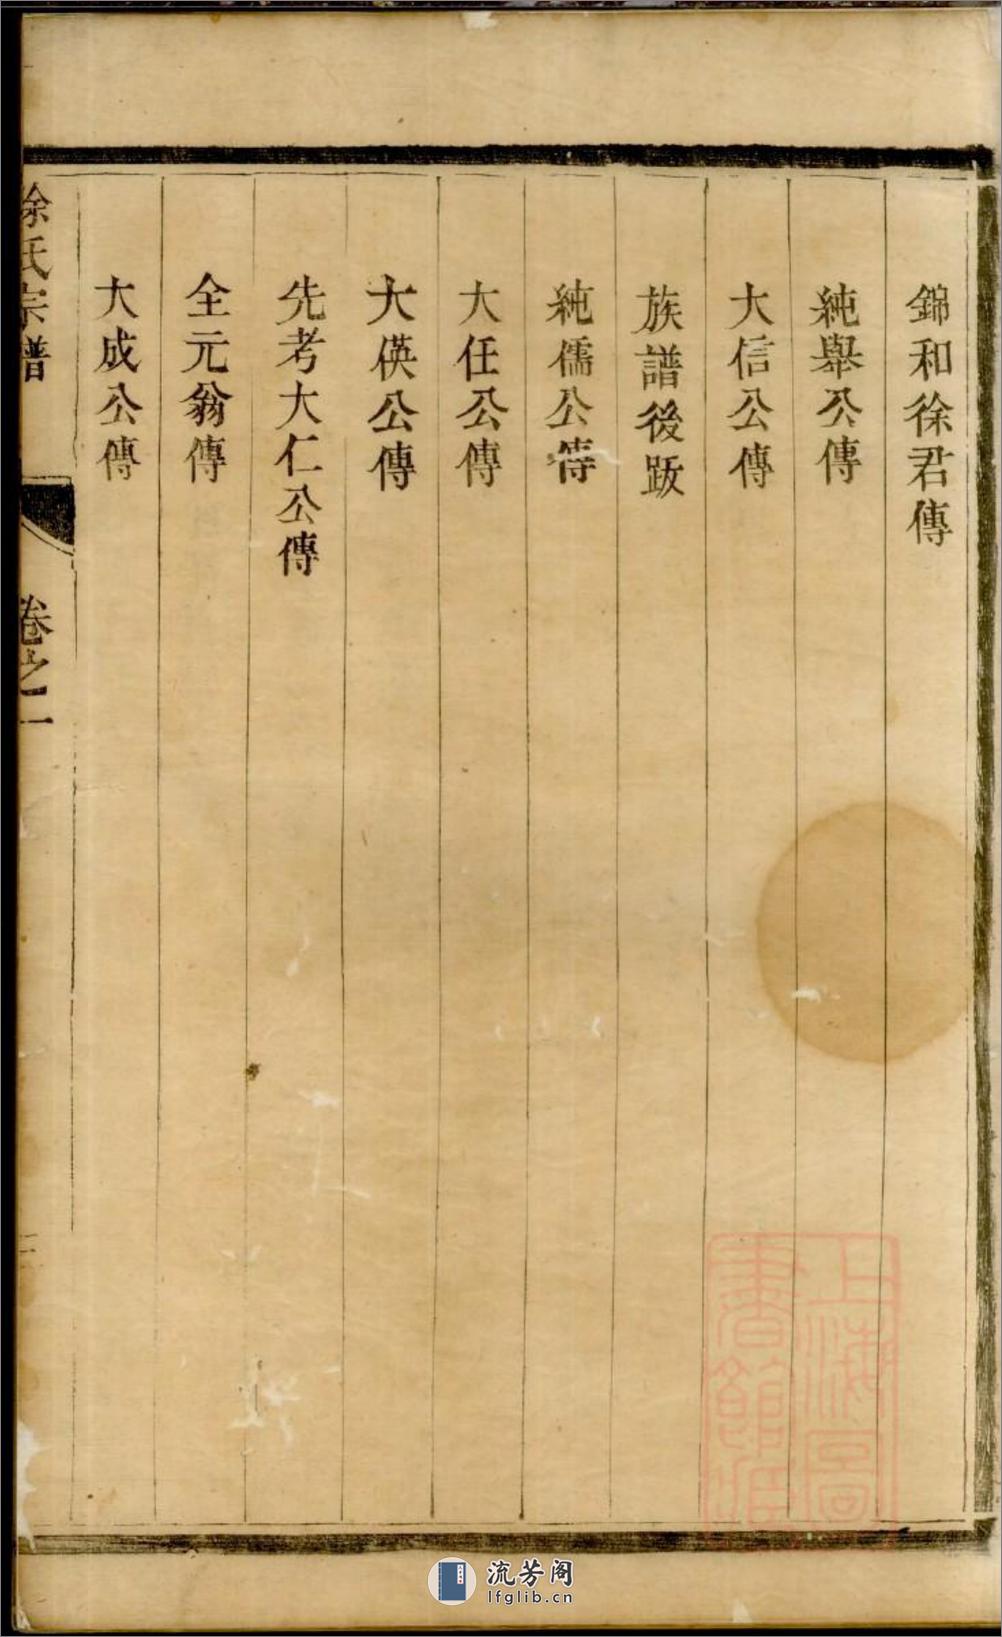 錦和徐君傳
純舉公傳
大信公傳
族譜後跋
純儒公傳
大任公傳
大偀公傳
先考大仁公傳
全元翁傳
大成公傳
徐氏宗譜
卷之一
二
上海圖
書館藏
流芳阁
lfglib.cn